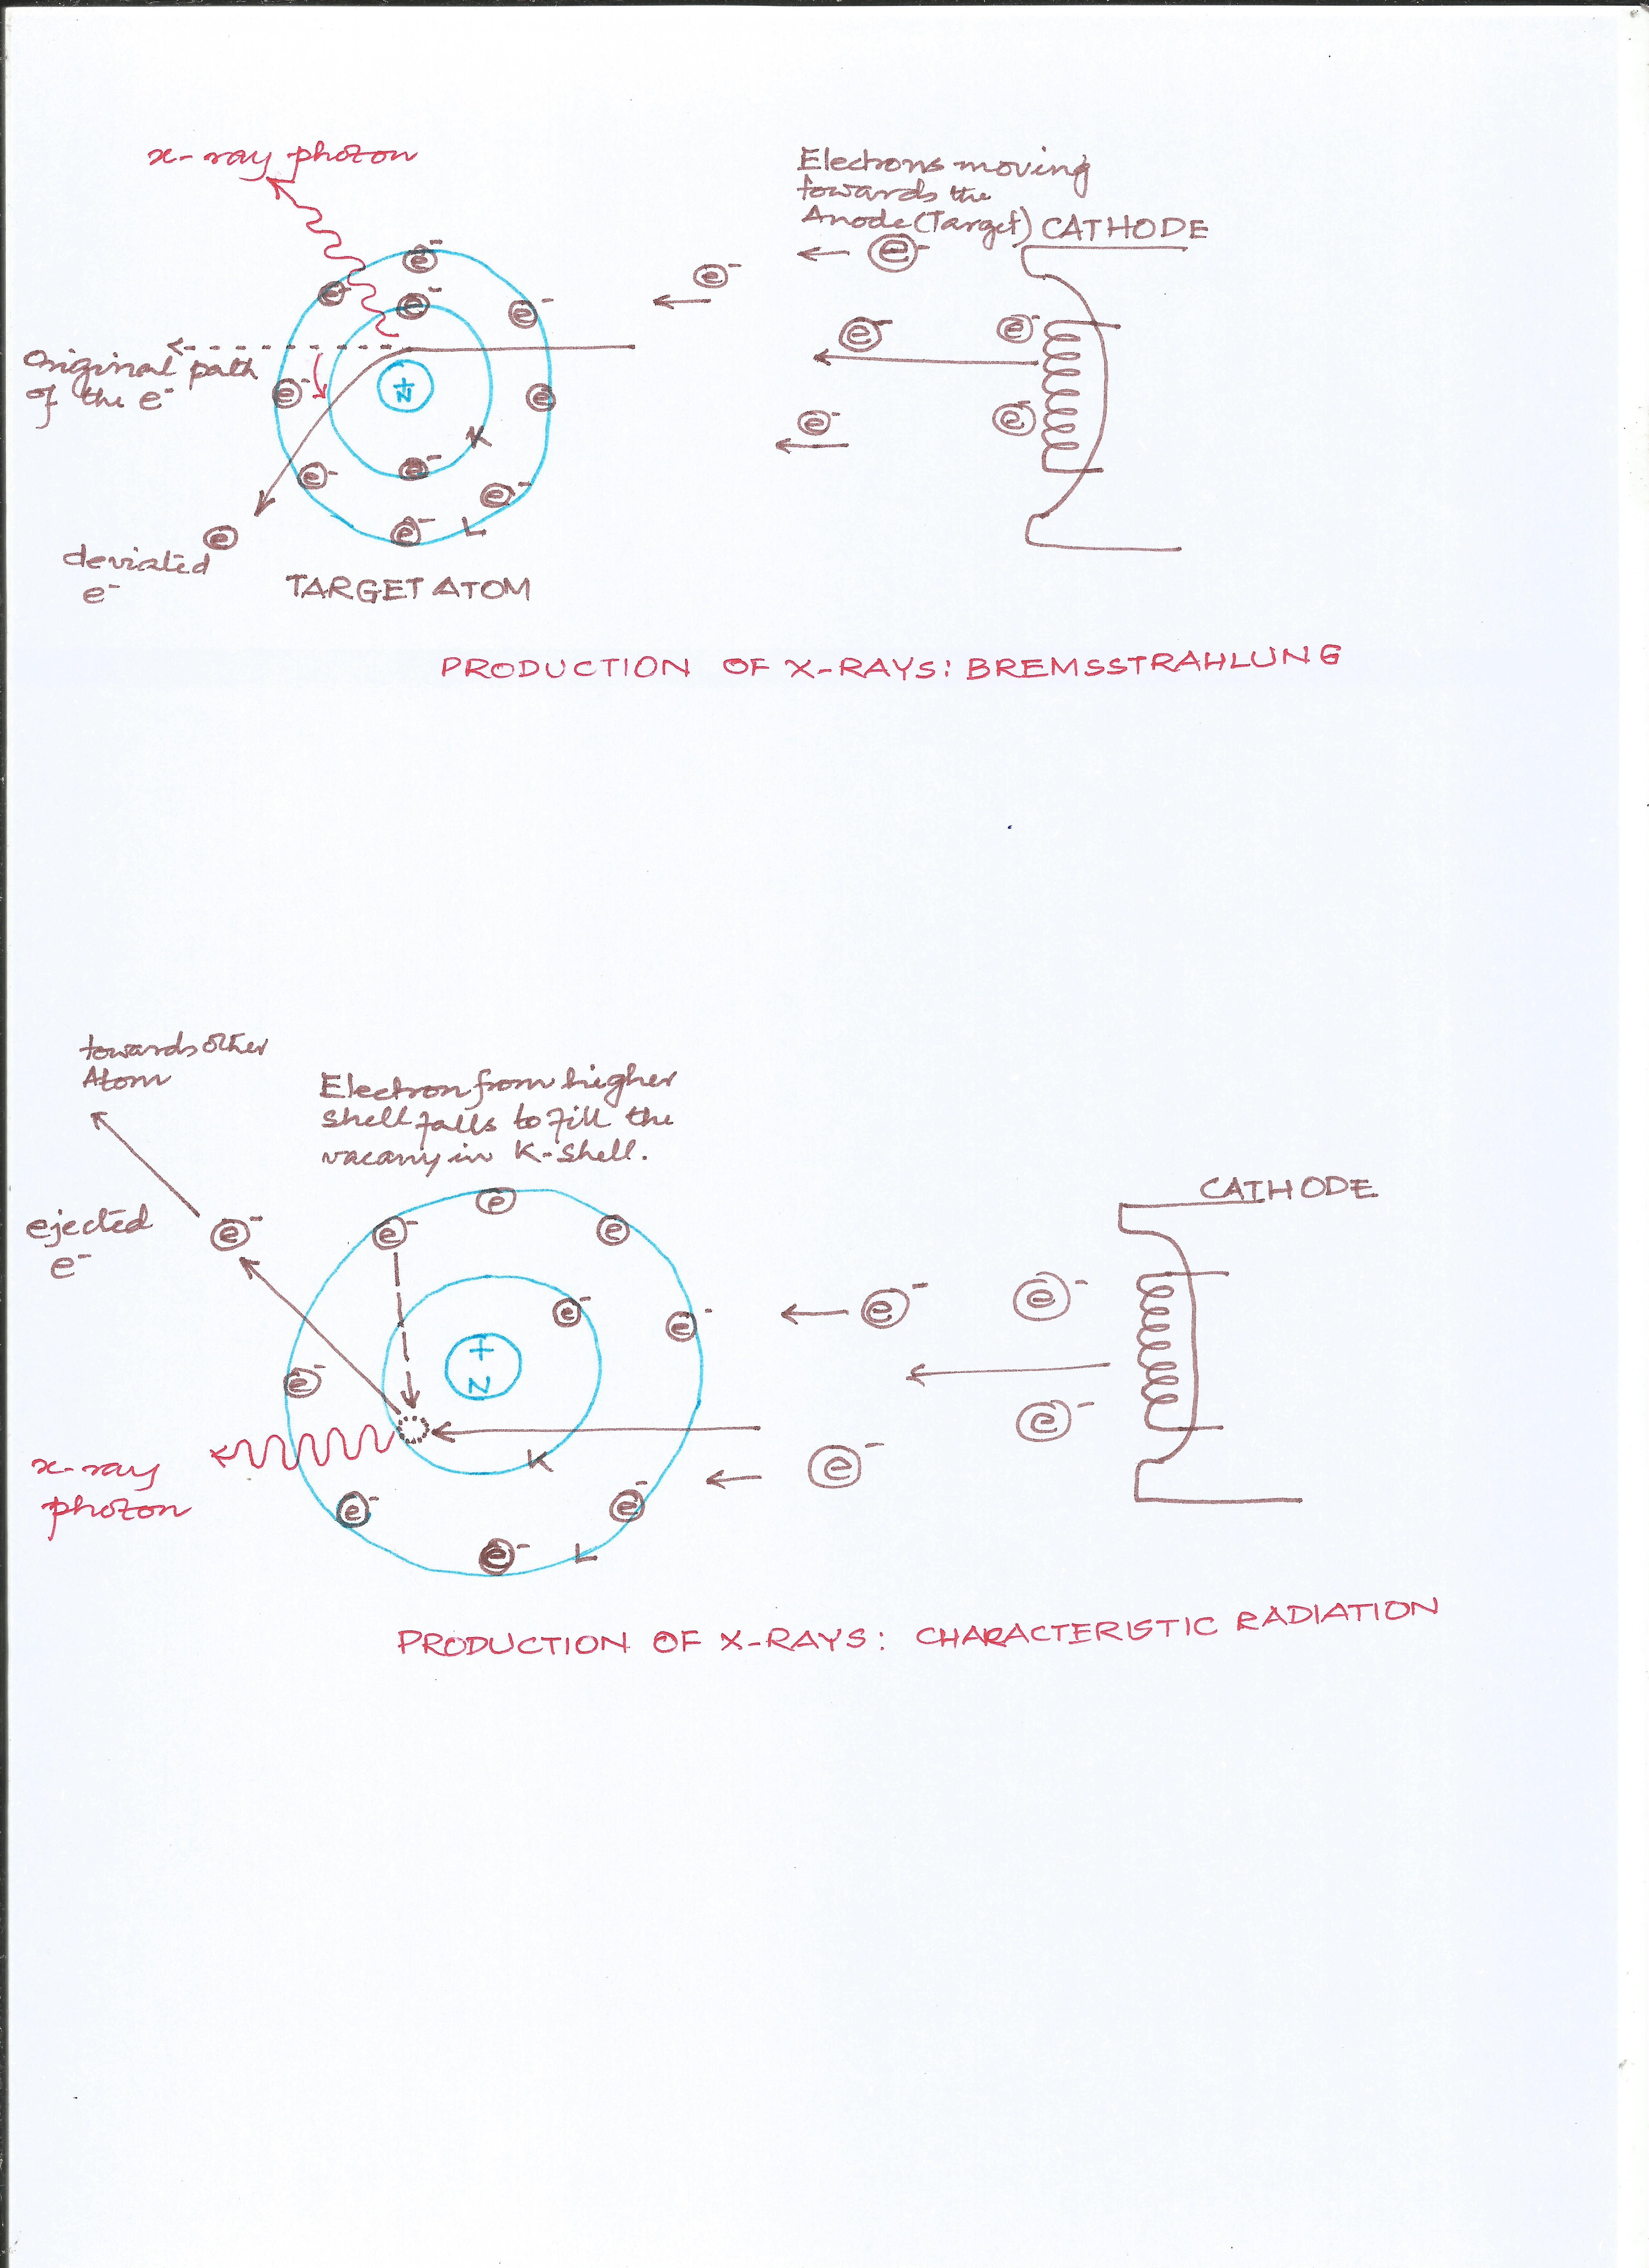 x-ray photon
Electrons moving
towards the
Anode (Target) CATHODE
e-
e-
e-
e-
e-
e-
e-
e-
e-
Original path
of the e-
e-
+
N
e
e-
e-
K
e-
e-
e-
e- L
e
deviated
e-
TARGET ATOM
PRODUCTION OF X-RAYS: BREMSSTRAHLUNG
towards other
Atom
Electron from higher
shell falls to fill the
vacany in K-shell.
CATHODE
ejected
e-
e-
e-
e
e
e-
e-
e-
e-
+
N
e-
e-
e-
x-ray
photon
K
e-
e-
e-
e-
L
PRODUCTION OF X-RAYS: CHARACTERISTIC RADIATION